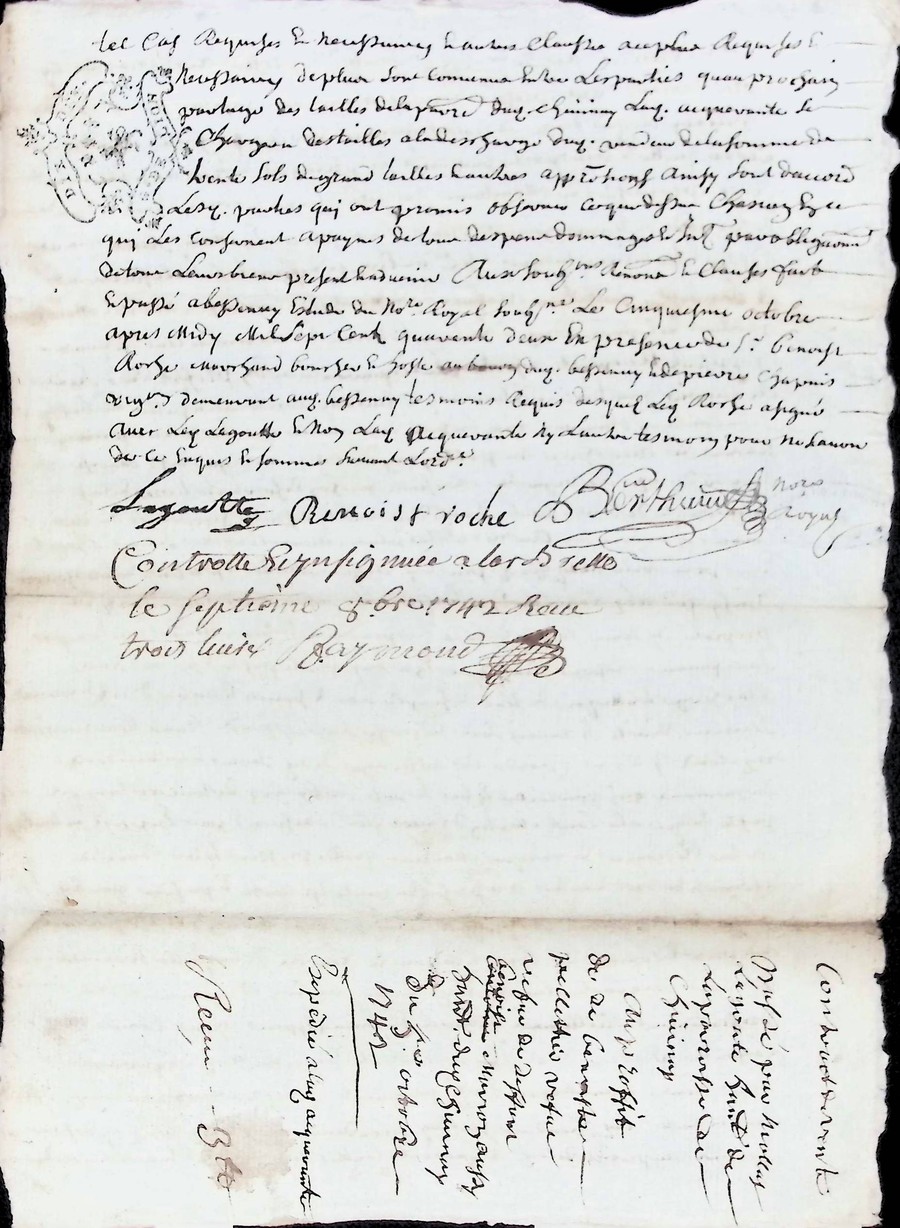 tel cas Requises et Necessaires et autres Clauses au plus Requises et
Necessaires de plus sont convenus entre Les parties quau prochain
partage des tailles de la parr.e dud. Chivinay Lad. acquereuse se
Chargera des tailles a la descharge dud. vendeur de la somme de
trente sols du grand tailles et autres Ainsy sont daccord
Lesd. parties qui ont promis observer ce que dessus
qui Les concernent a paynes de tous despens dommages et par obligaon
de tous Leurs biens present et advenir Aux soub.ons et Clauses fait
et passé a bessenay Estude du No.re Royal soub.né Le Cinquiesme octobre
apres Midy Mil Sept Cent quarente deux En presence de S.r benoist
Roche Marchand et hoste dud. bessenay et de pierre Chapuis
vig.n demeurant aud. bessenay tesmoins Requis desquels Led. Roche a signé
avec Led. Lagoutte et Non Lad. acquereuse Ny Lautre tesmoin pour ne savoir
de ce Enquis et sommés suivant Lord.e
Lagoutte Benoist roche Berthieu No.re
Royal
Controllé Et Insignuée a larBrelle
le septième 8.bre 1742 Receu
trois livres Raymond
Contract de vente
passé par
Lagoutte hant de
La parroisse de
Chivinay
Au proffit
de de benoiste
pellethié vefve
vefve de deffunt
benoist
hant. dud. Chivinay
du 5.me octobre
1742
Expedié a lad. acquereuse
Receu 3